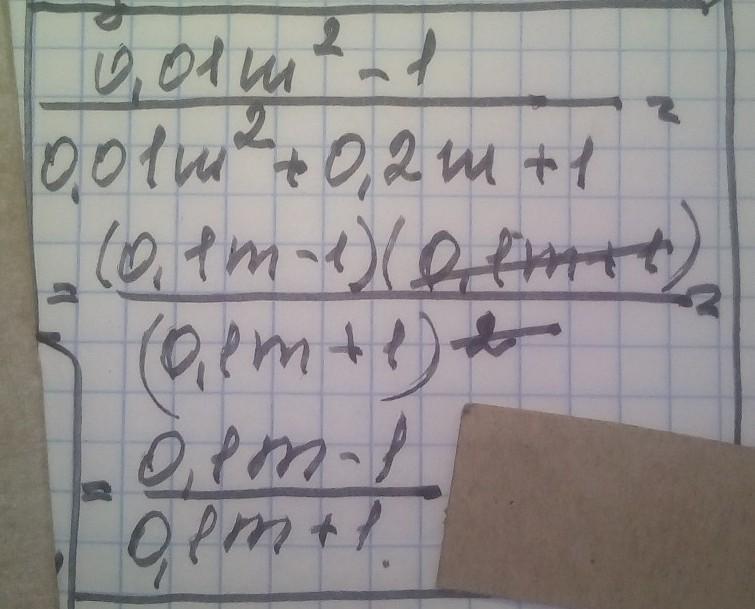 0,01m² - 1
0,01m² + 0,2m + 1 =
= (0,1m - 1)(0,1m + 1) =
(0,1m + 1)²
= 0,1m - 1
0,1m + 1.